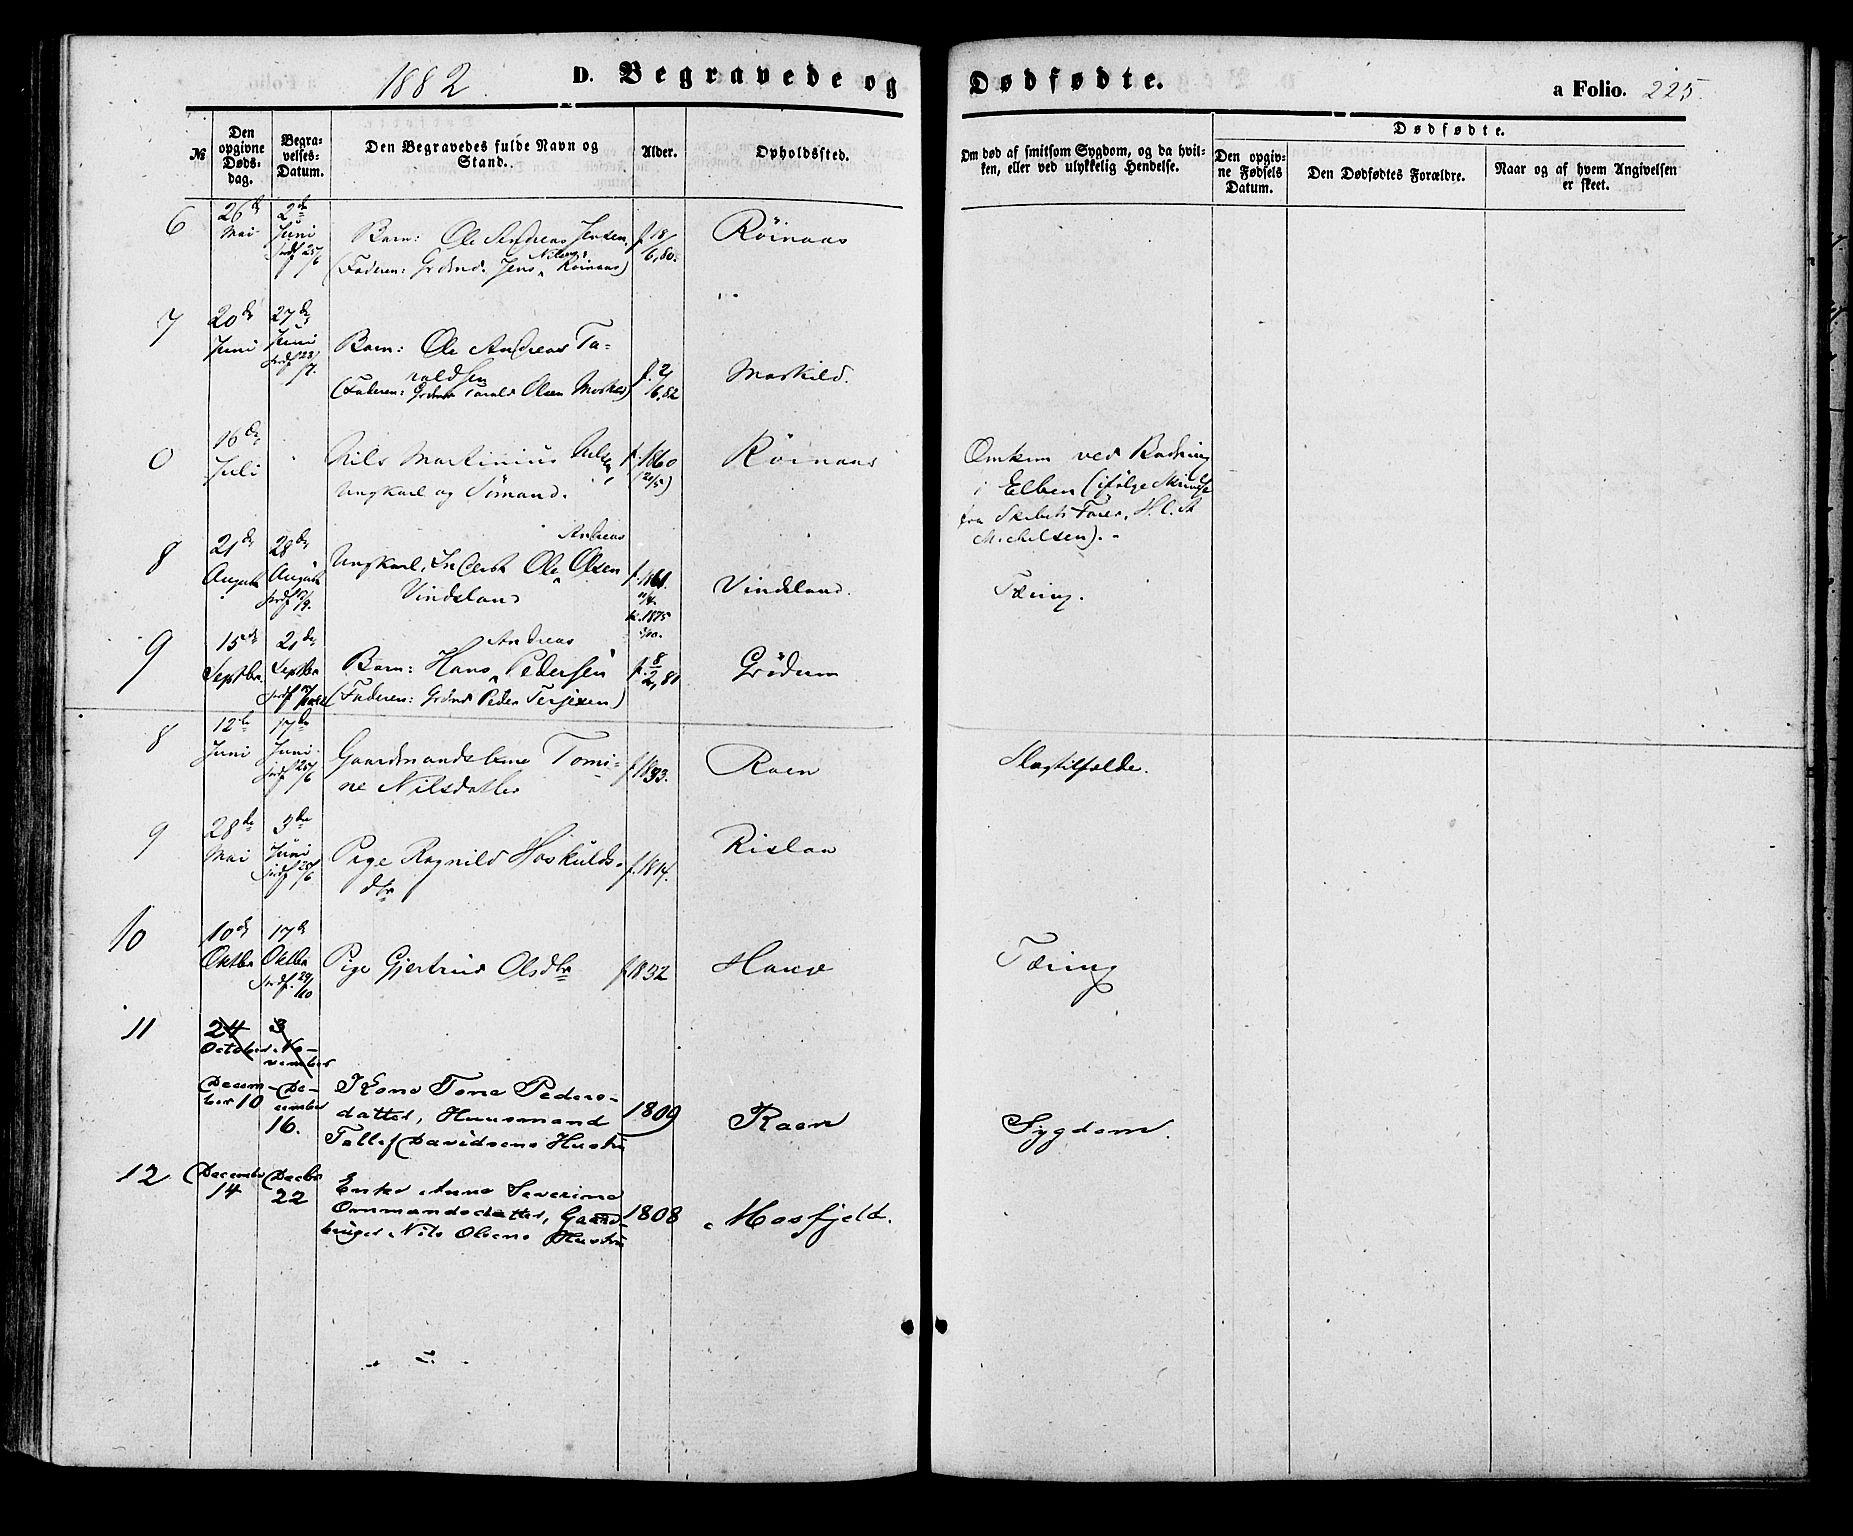 1882
D. Begravede og
Dødfødte.
a Folio. 225.
№
Den opgivne Døds-dag.
Begra-velses-Datum.
Den Begravedes fulde Navn og Stand.
Alder.
Opholdssted.
Om død af smitsom Sygdom, og da hvil-ken, eller ved ulykkelig Hendelse.
Dødfødte.
Den opgiv-ne Fødsels Datum.
Den Dødfødtes Forældre.
Naar og af hvem Angivelsen er skeet.
6
26de Mai
2den Juni
Jrdf 25/6
Barn: Ole Andreas Jensen
(Faderen: Grdmd. Jens Nilsens Röinaas)
f. 18/6, 80.
Röinaas
7
20de Juni
27de Juni
Jrdf 23/7.
Barn: Ole Andreas Ta-
raldsen
(Faderen: Grdmd Tarald Olsen Moskild)
f. 2/6, 82
Moskild.
0
16de Juli
Nils Martinius Nilsen
Ungkarl og Sömand.
f. 1860
(20/5)
Röinaas
Omkom ved Badning
i Elben (ifølge Skrivelse
fra Skibets Fører, H. C. 
Michelsen).
8
21de August
28de August
Jrdf 10/9.
Andreas
Ungkarl, Inderst Ole Olsen
Vindsland
f. 1861
11/4.
k. 1875
3/10.
Vindsland.
Tæring.
9
15de Septbr
21de Septbr
Jrdf
Andreas
Barn: Hans Pedersen
(Faderen: Grdmd Peder Terjesen)
f. 8/2, 81
Grödum
8
12te Juni
17de Juni
Jrdf 25/6
Gaardmandskone Tomi-
ne Nilsdatter
f. 1833.
Roen
Slagtilfælde.
9
28de Mai
3die Juni
Jrdf 25/6.
Pige Ragnild Hoskulds-
dtr
f. 1814.
Rislaa
10
10de Oktbr
17de Oktbr
Jrdf. 29/10
Pige Gjertrud Olsdtr
f. 1832
Hauge
Tæring
11
24 October
3 November
December 10
December 16.
Kone Tone Peders-
datter, Huusmand
Tallef Davidsens Hustru
1809
Roen
Sygdom.
12
December 14
Decbr 22
Enke Anne Severine
Ommundsdatter, Gaard-
bruger Nils Olsens Hustru
1808
Mosfjeld.